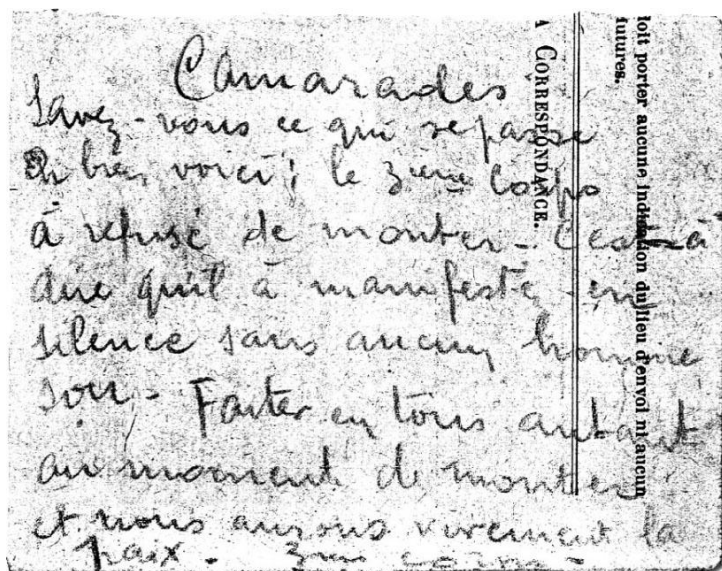 Camarades
Savez-vous ce qui se passe
Eh bien voici : le 3ème Corps
à refusé de monter - C'est-à
dire qu'il à manifesté en
silence sans aucun homme
sou - Faites en tous autant
au moment de monter
et nous aurons vivement la
paix - 3me corps -
A CORRESPONDANCE.
doit porter aucune indication du lieu d'envoi ni aucun
futures.